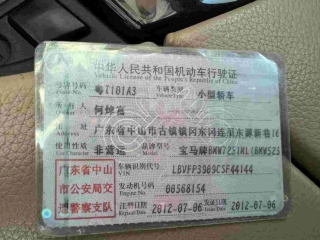 中华人民共和国机动车行驶证
Vehicle License of the People's Republic of China
号牌号码 粤T101A3 车辆类型 小型轿车
Plate No. Vehicle Type
所有人 何焯高
Owner
住址 广东省中山市古镇镇冈东冈连里东源新巷16
使用性质 非营运 品牌型号 宝马牌BMW7251ML(BMW525
Use Character
广东省中山
市公安局交
通警察支队
车辆识别代号 LBVFP3909CSF44144
VIN
发动机号码 08568154
Engine No.
注册日期 2012-07-06 发证日期 2012-07-06
Register Date Issue Date